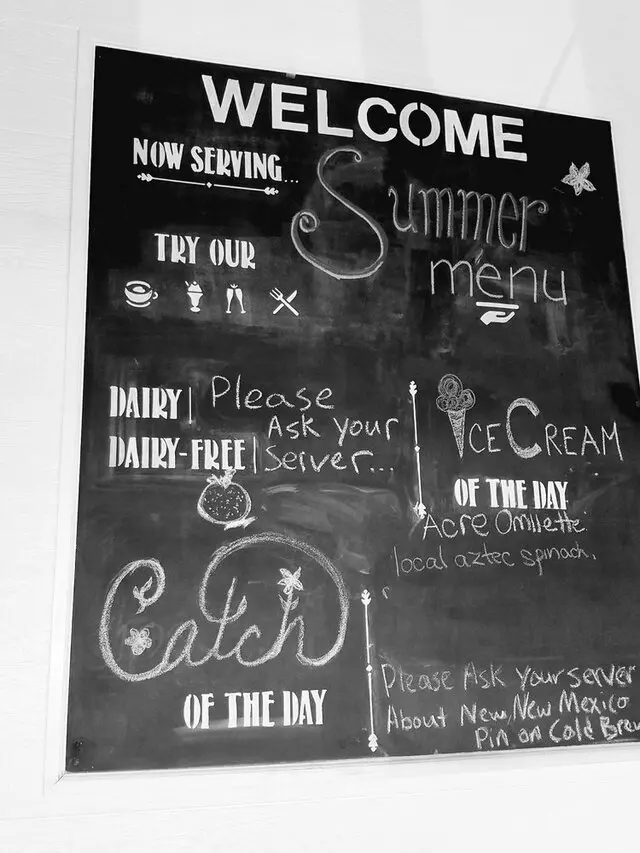 WELCOME
NOW SERVING...
Summer
menu
TRY OUR
DAIRY | Please
Ask your
DAIRY-FREE | Server...
ICE CREAM
OF THE DAY
Acre Omllette
local aztec spinach.
Catch
OF THE DAY
Please Ask your server
About New, New Mexico
Pin on Cold Brew